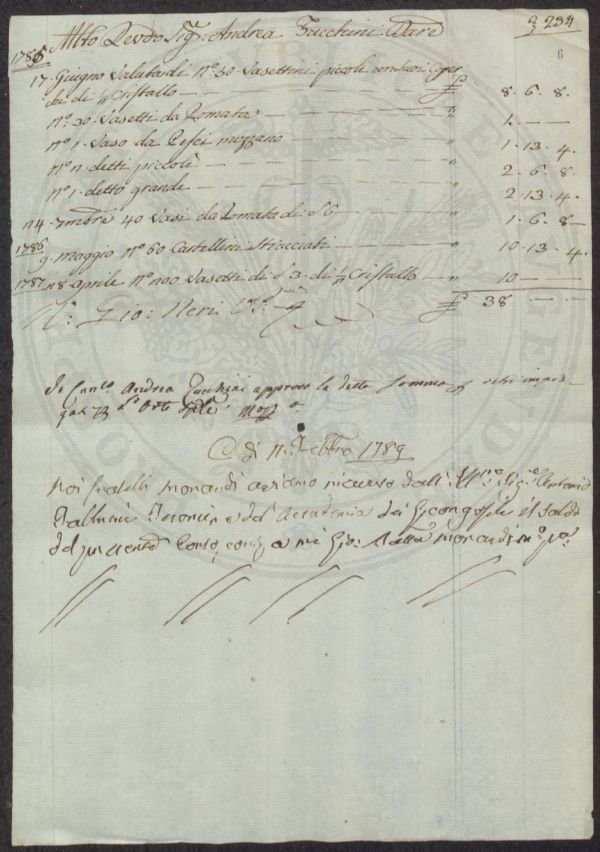 234
6
Molto Revdo Sig: Andrea Zucchini Dare
1785
17. Giugno Valuta di No. 30 Vasettini piccoli con suoi Coper
chi di ½ Cristallo — £ 8. 6. 8.
No. 30. Vasetti da Pomata — " 1. — —
No. 1. Vaso da Pesci mezzano — " 1. 13. 4.
No. 2. detti piccoli — " 2. 6. 8.
No. 1. detto grande — " 2. 13. 4.
24. 7mbre 40 Vasi da Pomata di S 6 — " 1. 6. 8 —
1786
9. maggio No. 60 Castellini Stiacciati — " 10. 13. 4.
1787 28 aprile No. 200 Vasetti di S 3. di ½ Cristallo — " 10 — —
£ 38 — —
Gio: Neri
Andrea Zucchini approvo la detta Somma
A di 11. Febbro 1789
Noi fratelli Morandi abiamo ricevuto dall' Illmo Sig.re Antonio
dell Accademia dei Georgofili il Saldo
del presente Conto, contti a me Gio: Batta Morandi mo. pa.